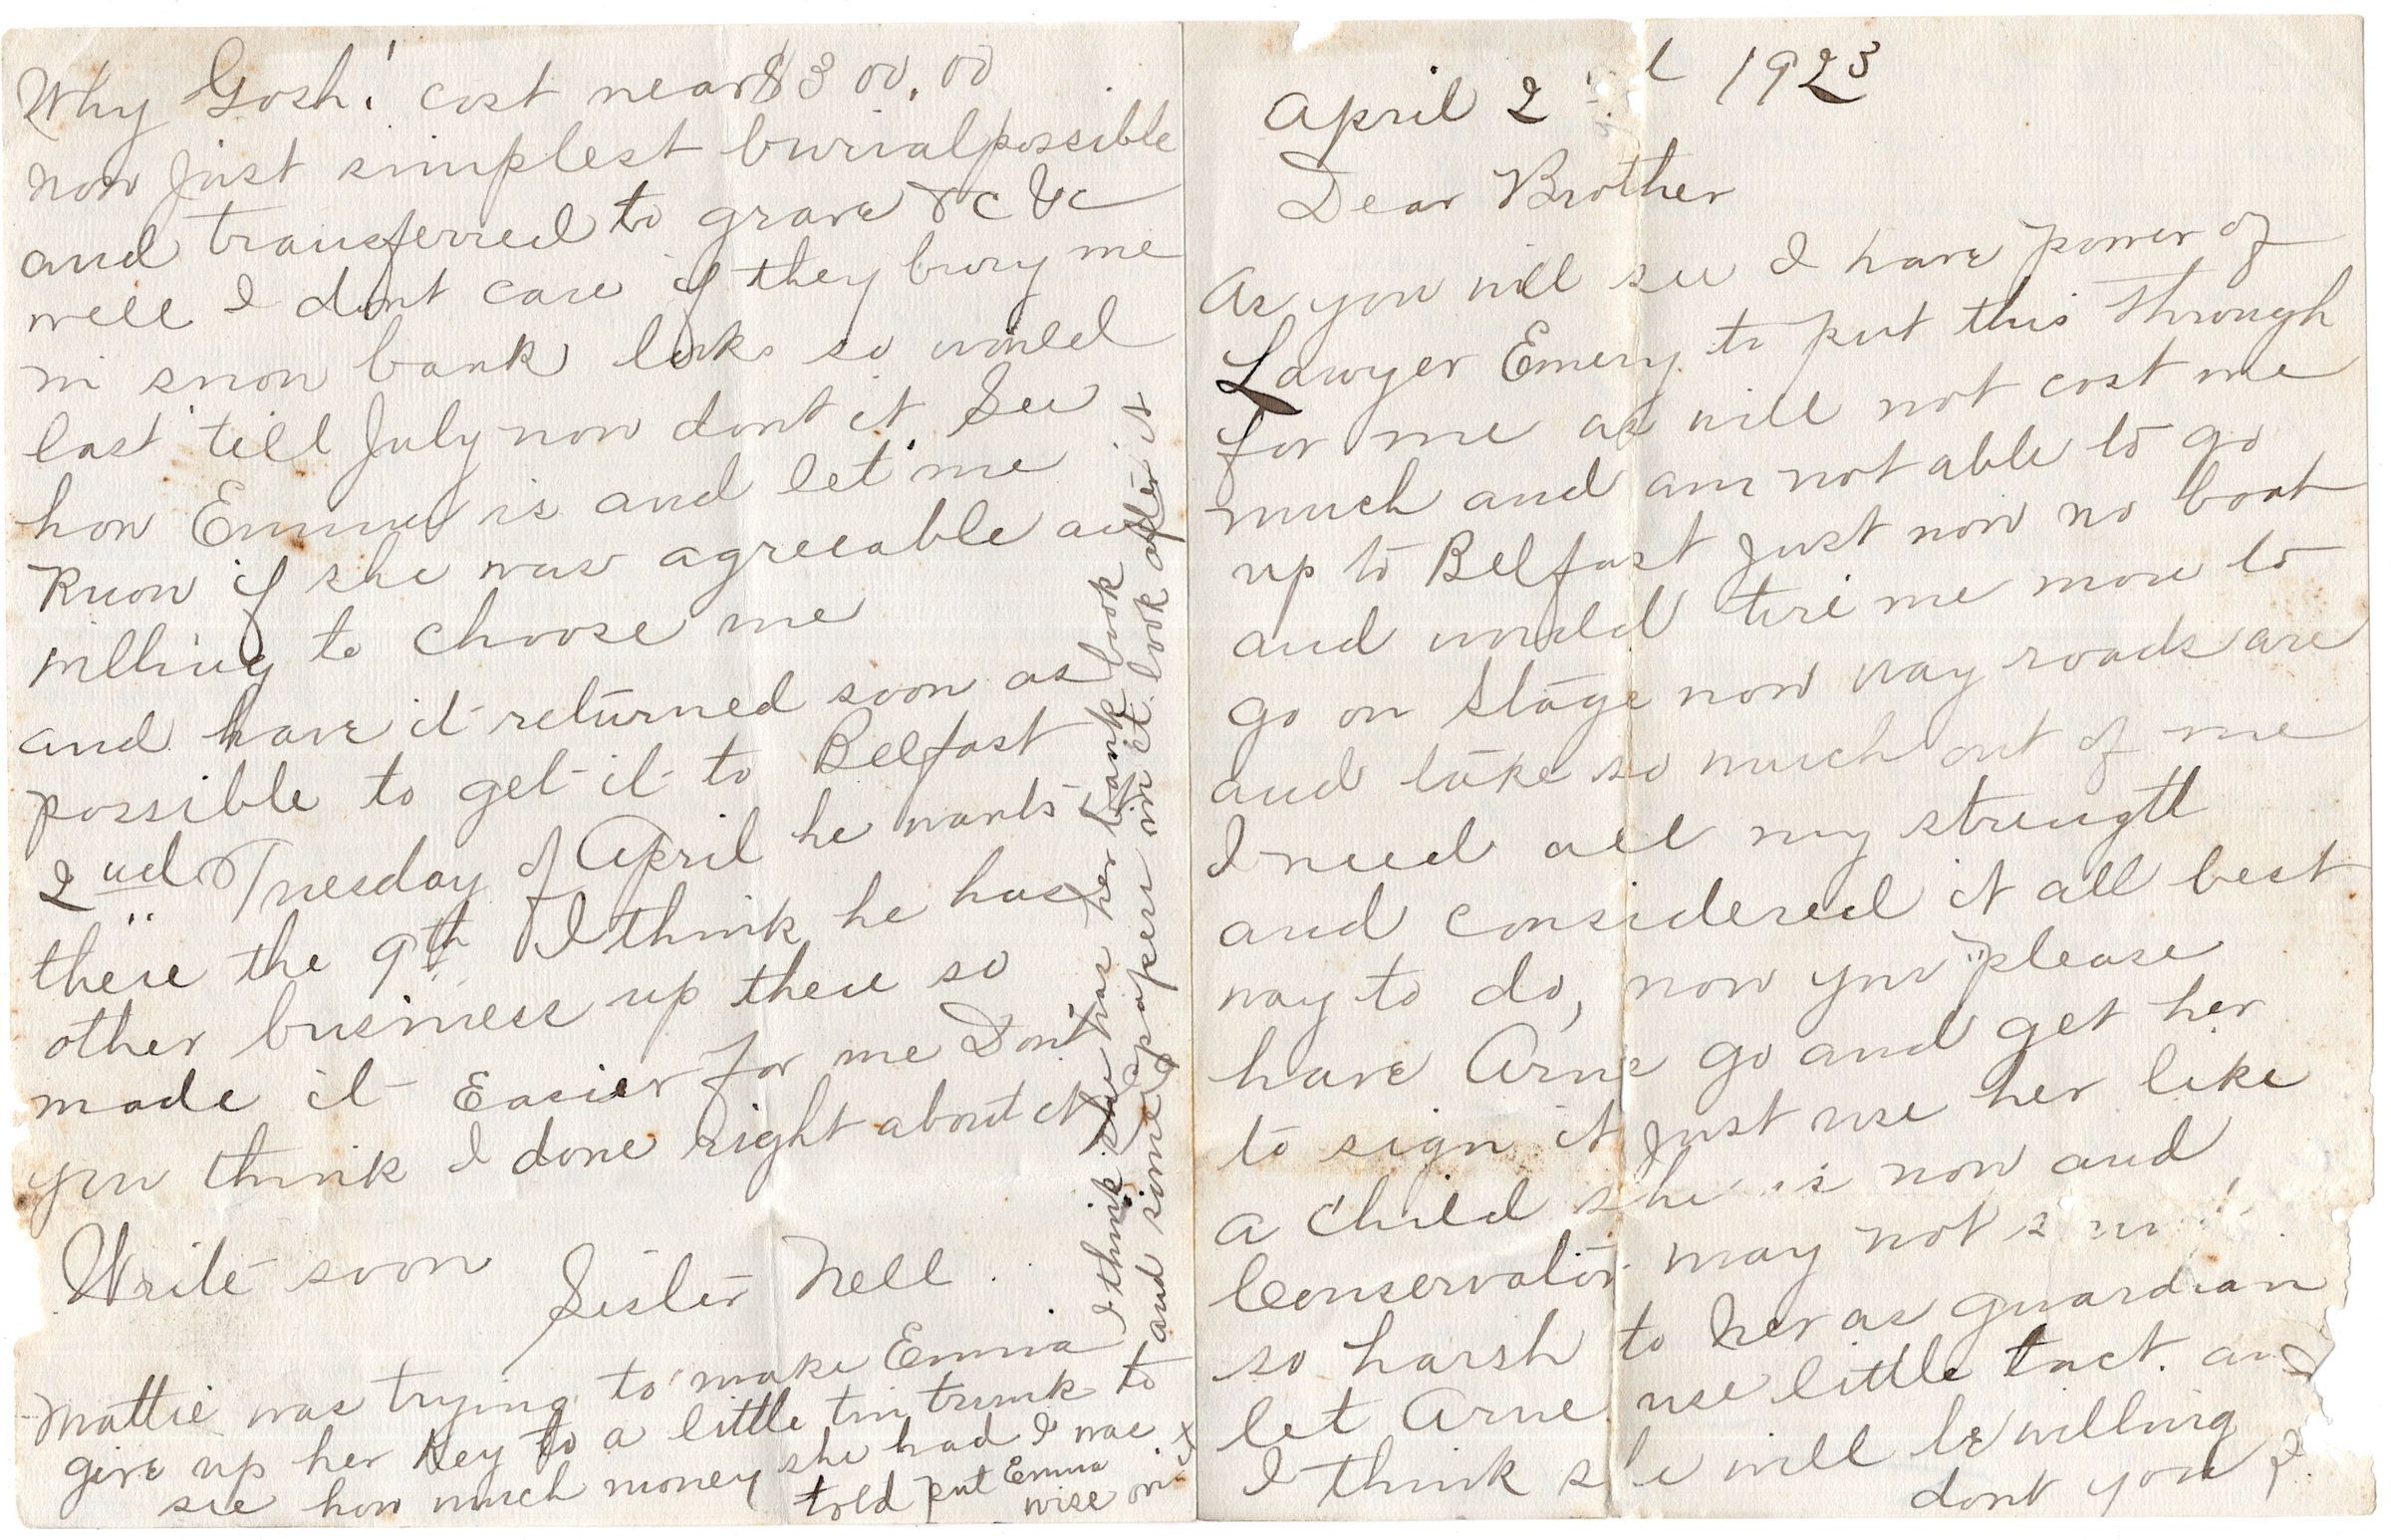 April 2nd 1923
Dear Brother
As you will see I have power of
Lawyer Emery to put this through
for me as will not cost me
much and am not able to go
up to Belfast just now no boat
and would tire me more to
go on stage now way roads are
and take so much out of me
I need all my strength
and considered it all best
way to do, now you please
have Arne go and get her
to sign it just use her like
a child she is now and
Conservator may not
so harsh to her as guardian
let Arne use little tact. and
I think she will be willing
dont you
Why Gosh! cost near $300.00
now just simplest burial possible
and transferred to grave &c &c
well I dont care if they bury me
in snow bank looks so would
last till July now dont it. See
how Emma is and let me
know if she was agreeable and
willing to choose me
and have it returned soon as
possible to get it to Belfast
2nd Tuesday of April he wants
there the 9th I think he has
other business up there so
made it Easier for me Don't
you think I done right about it
Write soon
Sister Nell
Mattie was trying to make Emma
give up her Key to a little tin trunk to
see how much money she had I was
told put Emma
wise on
I think she has her bank book
and some papers in it. look after it